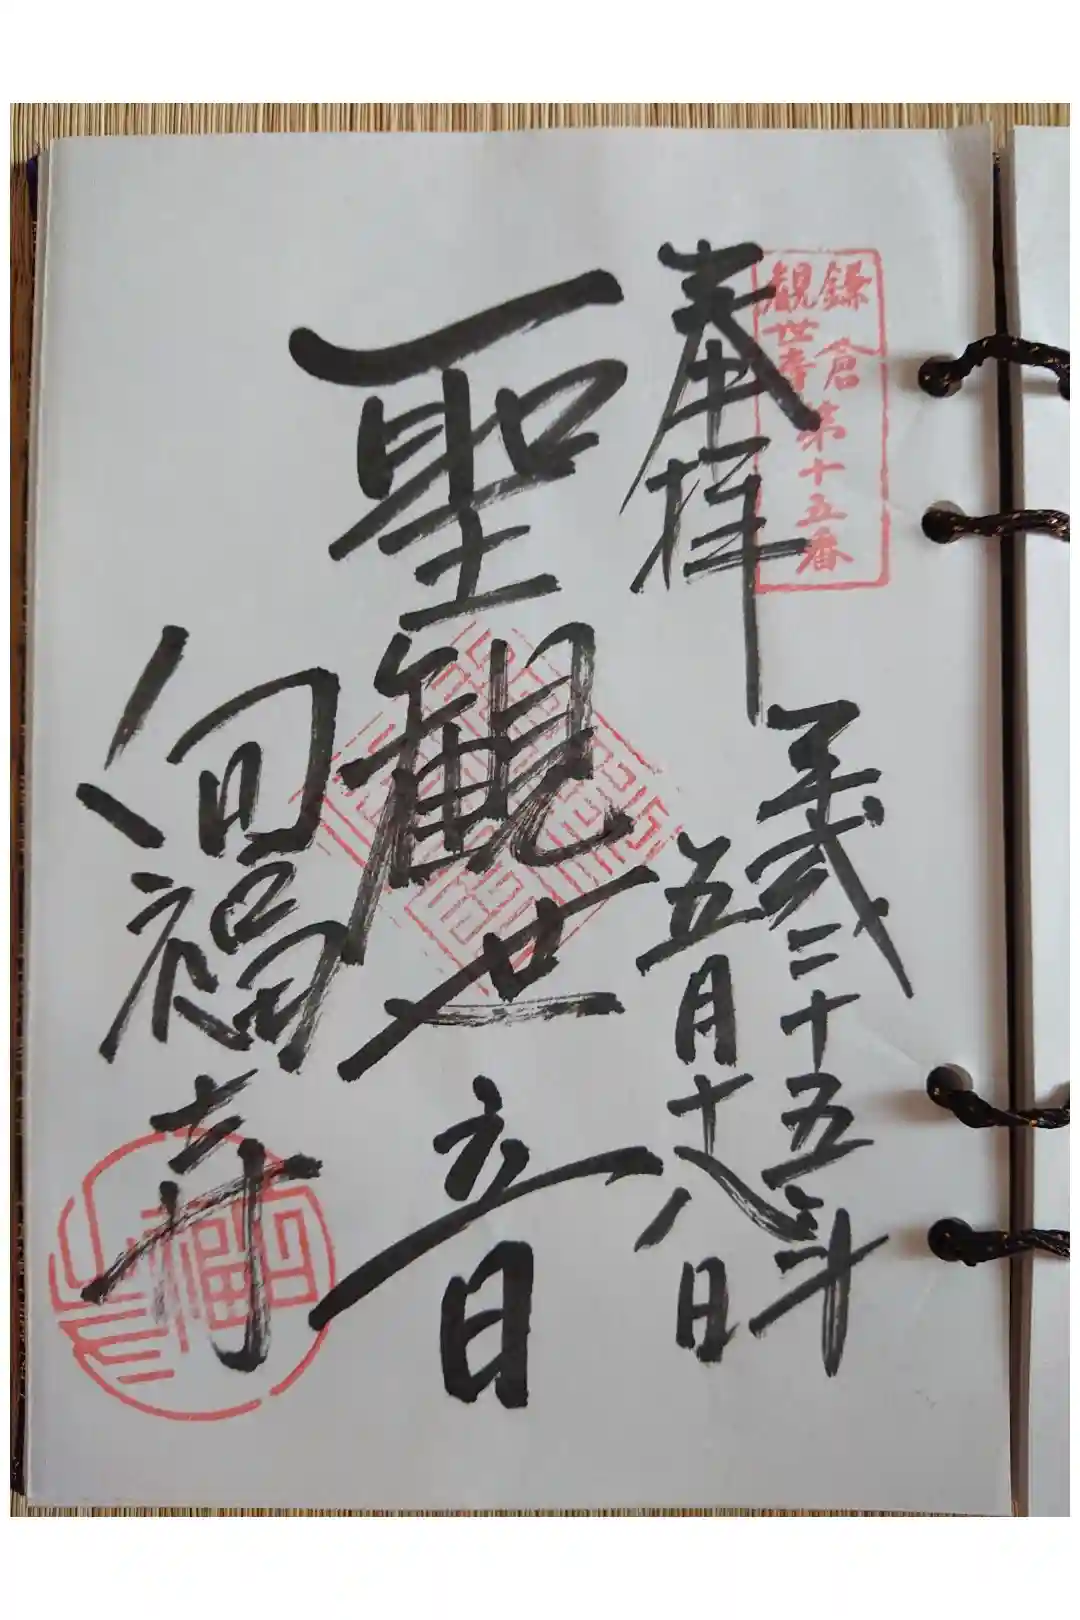 鎌倉
観世音
第十五番
奉拝
平成二十五年
五月十八日
聖観世音
向福寺